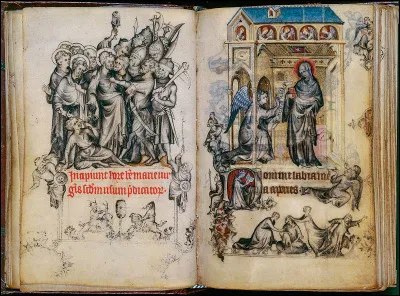 Incipiunt hore be marie uir
gis scdm usum pdicator
Domine labia me
a aperies